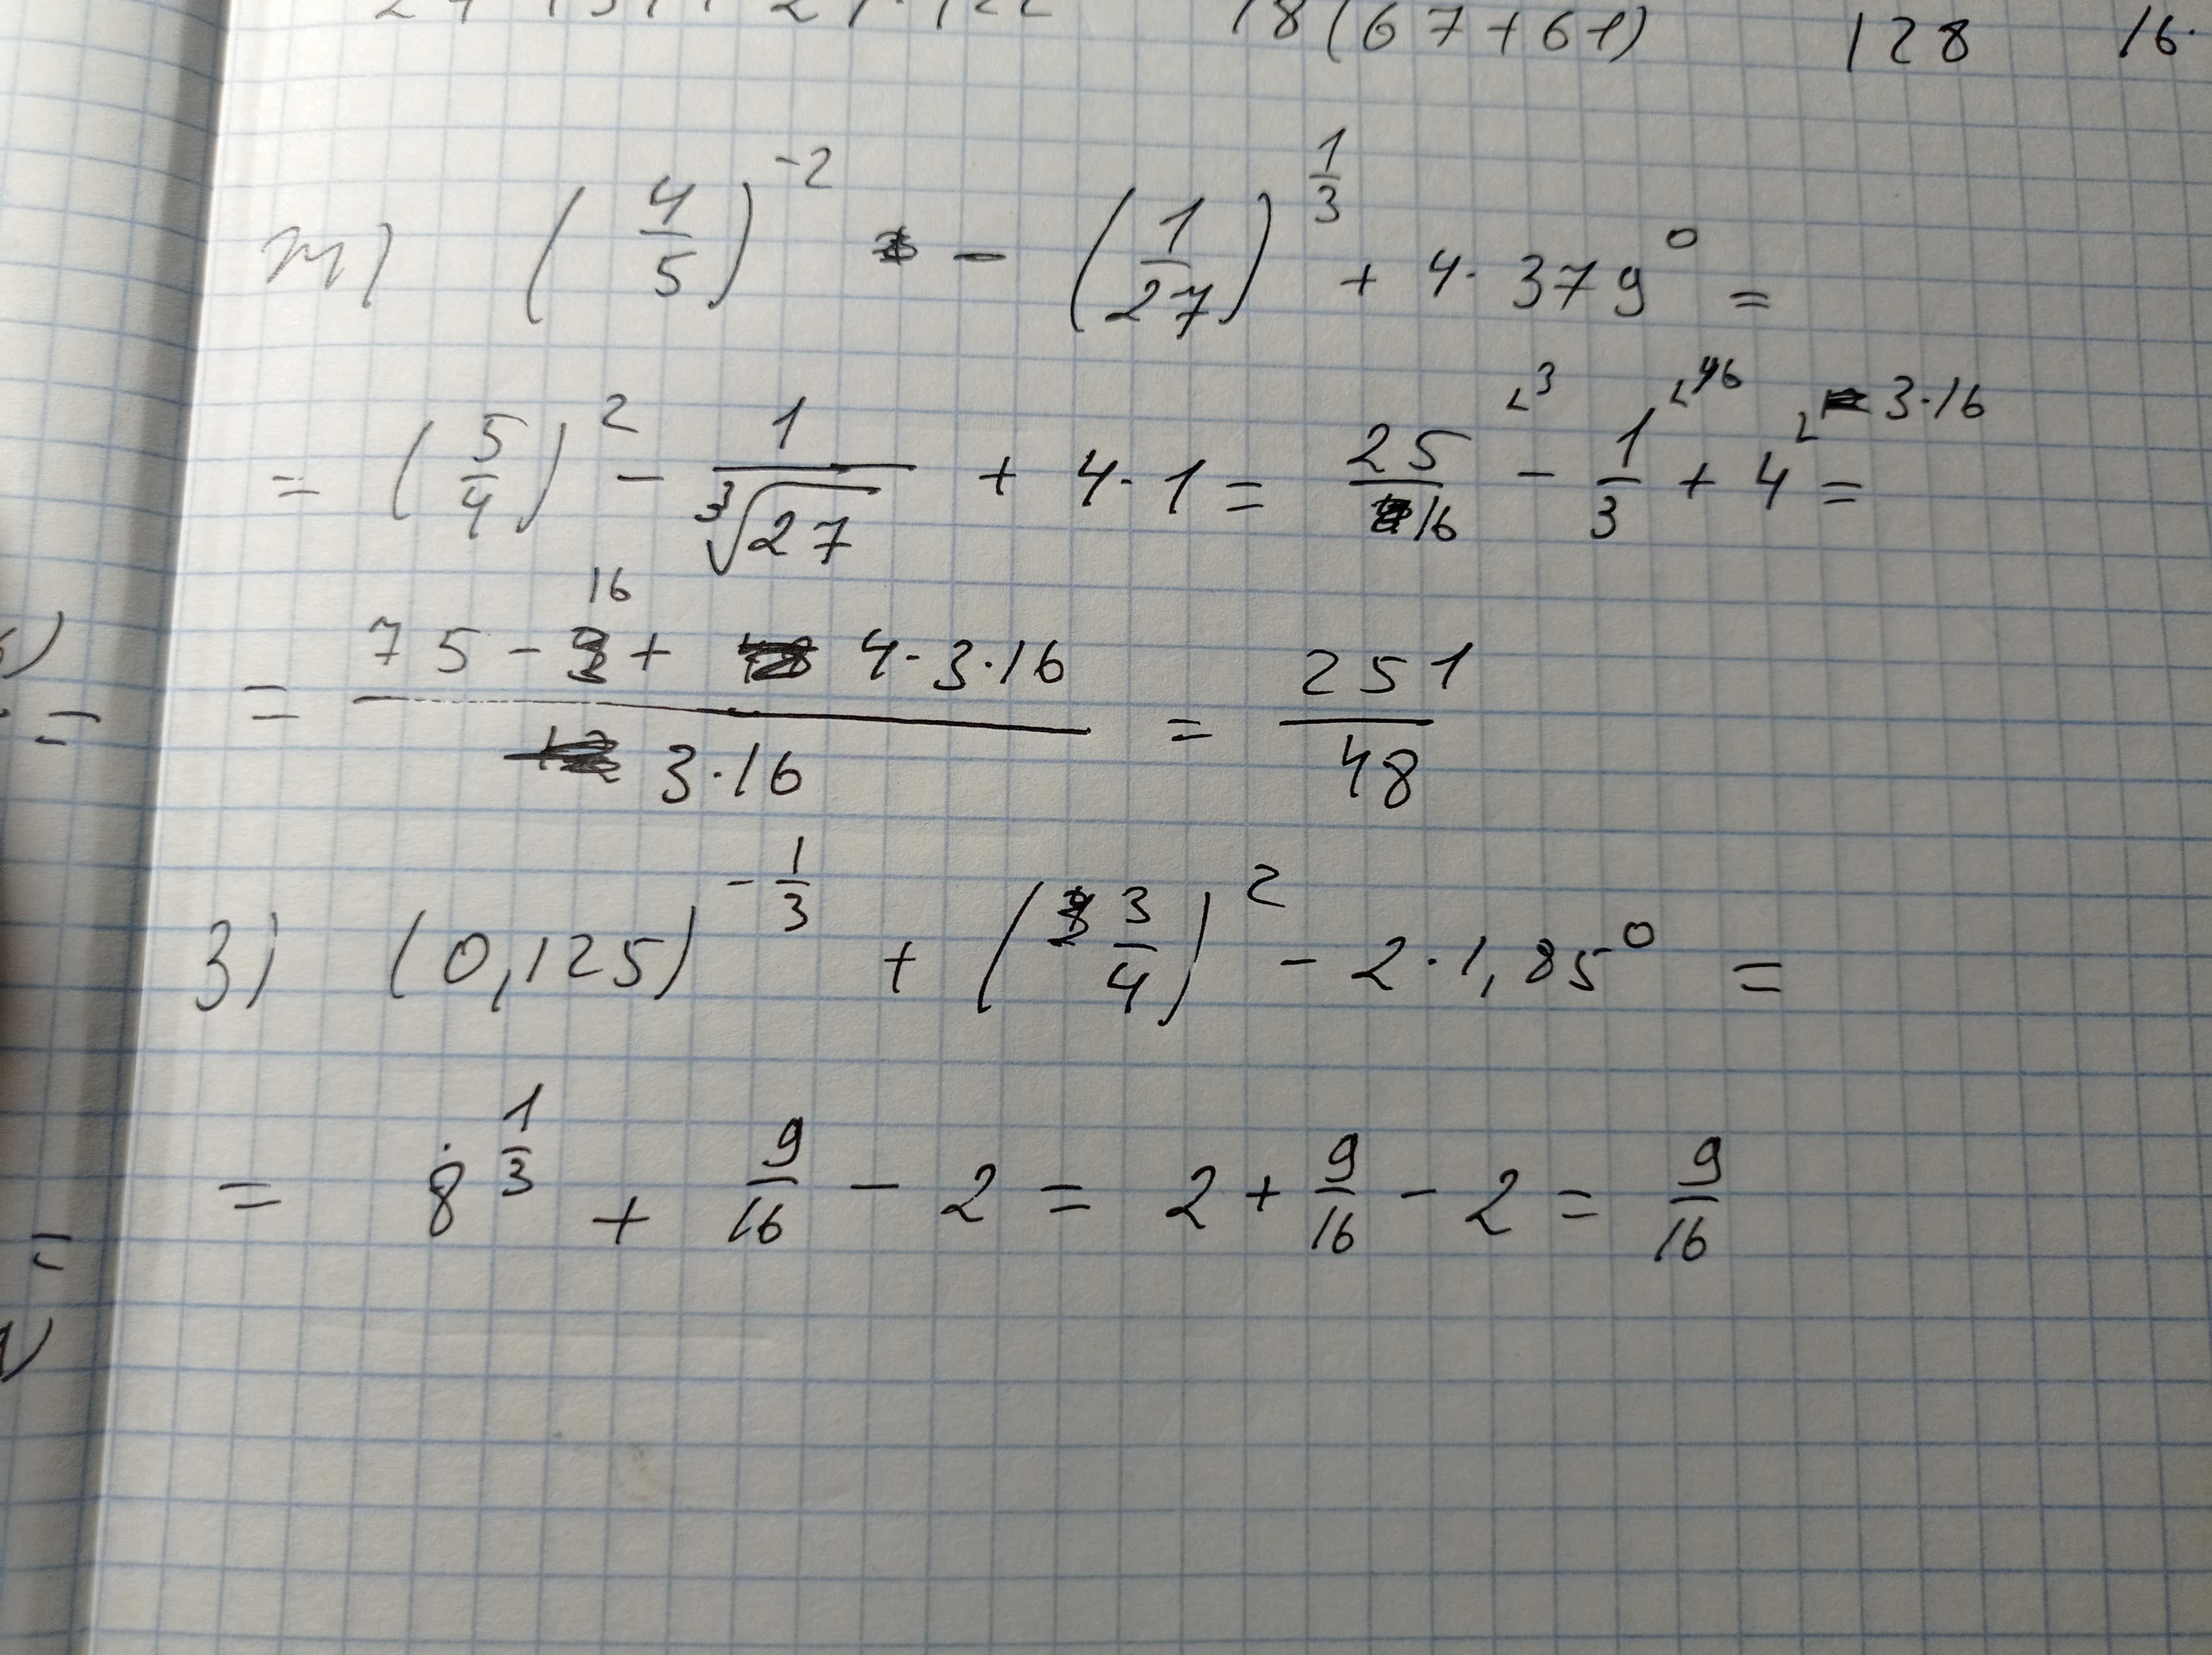 18(67+61) 128 16·
m) (4/5)^-2 - (1/27)^1/3 + 4·379^0 =
= (5/4)^2 - 1/∛27 + 4·1 = 25/16 ^3 - 1/3 ^16 + 4 ^3·16 =
= (75 - 16 + 4·3·16)/(3·16) = 251/48
з) (0,125)^-1/3 + (3/4)^2 - 2·1,85^0 =
= 8^1/3 + 9/16 - 2 = 2 + 9/16 - 2 = 9/16